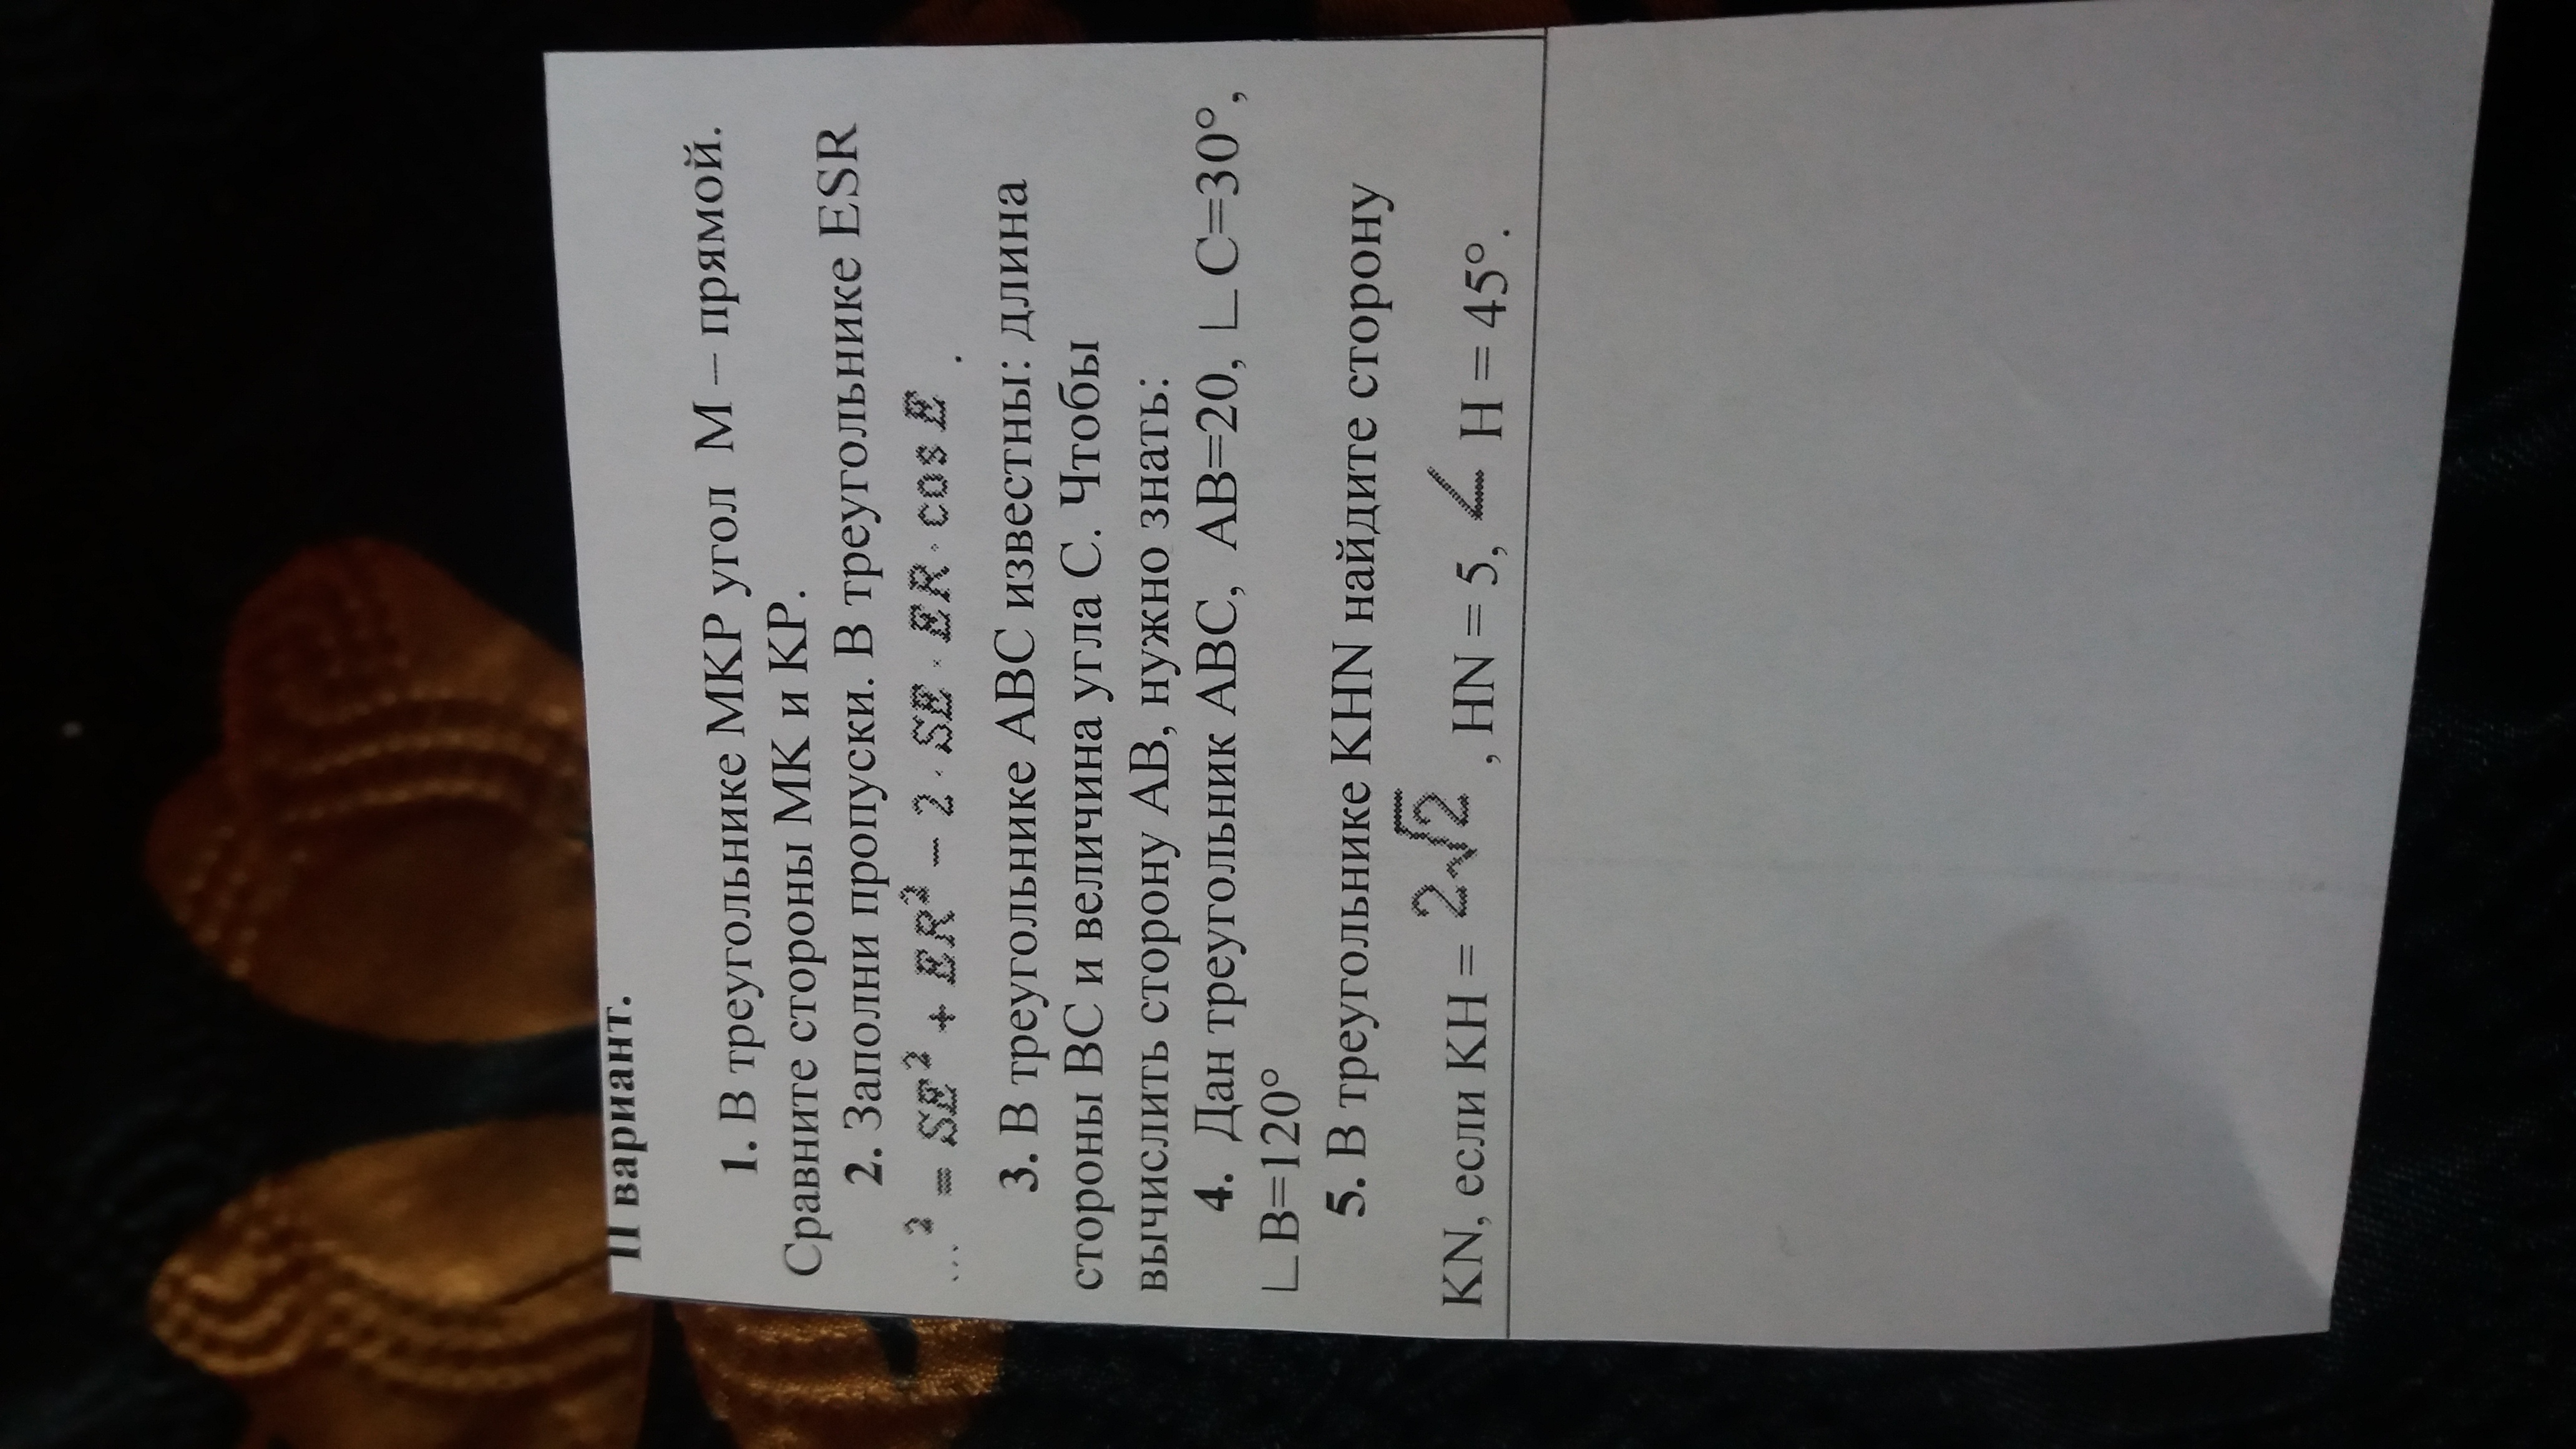 II вариант.
1. В треугольнике МКР угол М – прямой.
Сравните стороны МК и КР.
2. Заполни пропуски. В треугольнике ESR
...² = SE² + ER² – 2 · SE · ER · cos E .
3. В треугольнике АВС известны: длина
стороны ВС и величина угла С. Чтобы
вычислить сторону АВ, нужно знать:
4. Дан треугольник АВС, АВ=20, ∟С=30°,
∟В=120°
5. В треугольнике KHN найдите сторону
KN, если КН = 2√2 , HN = 5, ∠ H = 45°.